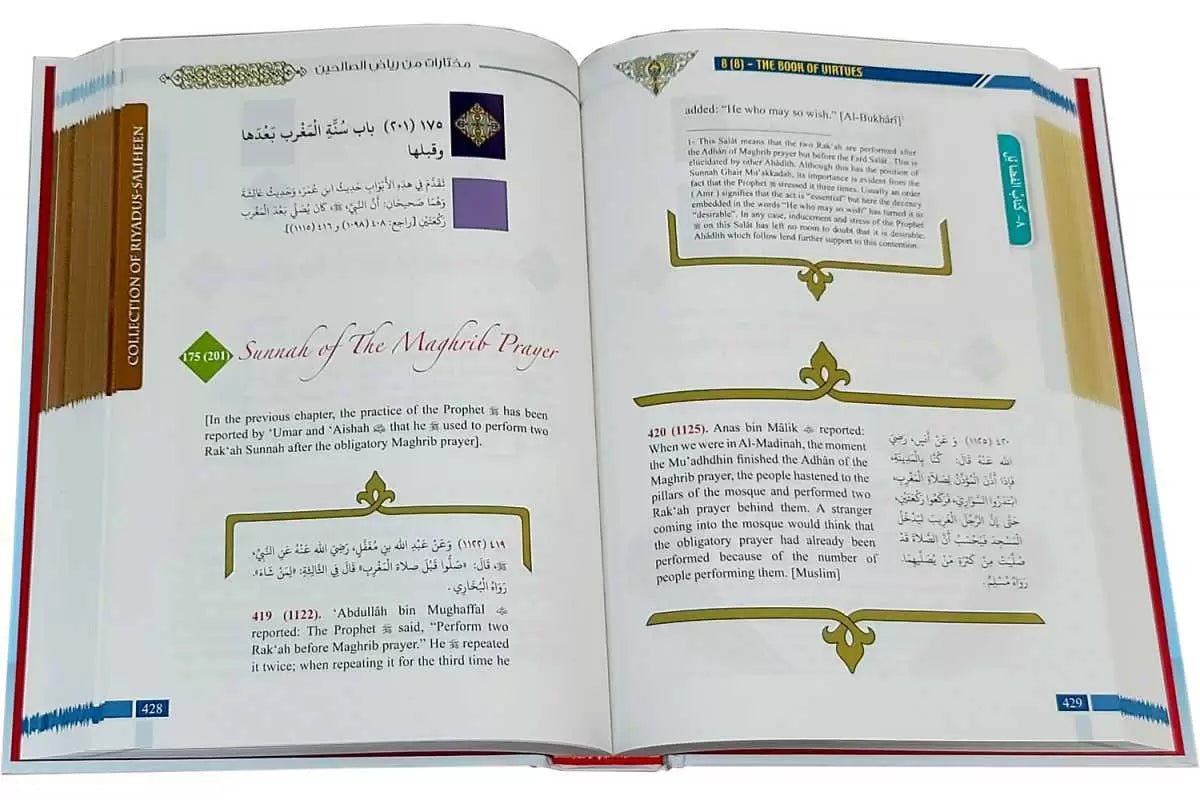 COLLECTION OF RIYADUS-SALIHEEN
مختارات من رياض الصالحين
١٧٥ (٢٠١) باب سُنَّةِ الْمَغْرِبِ بَعْدَها
وقبلها
تَقَدَّمَ فِي هذِهِ الأَبْوَابِ حَدِيثُ ابنِ عُمَرَ، وَحَدِيثُ عَائِشَةَ
وَهُمَا صَحِيحَانِ: أَنَّ النَّبِيَّ، ﷺ، كَانَ يُصَلِّي بَعْدَ الْمَغْرِبِ
رَكْعَتَيْنِ [راجع: ٤٠٨ (١٠٩٨) و ٤١٦ (١١١٥)].
175 (201) Sunnah of The Maghrib Prayer
[In the previous chapter, the practice of the Prophet ﷺ has been
reported by ‘Umar and ‘Aishah that he ﷺ used to perform two
Rak‘ah Sunnah after the obligatory Maghrib prayer].
٤١٩ (١١٢٢) وَعَنْ عَبْدِ الله بنِ مُغَفَّلٍ، رَضِيَ الله عَنْهُ عَنِ النَّبِيِّ،
ﷺ، قَالَ: «صَلُّوا قَبْلَ صلاءِ الْمَغْرِبِ» قَالَ فِي الثَّالِثَةِ: «لِمَنْ شَاءَ».
رَوَاهُ الْبُخَارِي.
419 (1122). ‘Abdullâh bin Mughaffal
reported: The Prophet ﷺ said, “Perform two
Rak‘ah before Maghrib prayer.” He ﷺ repeated
it twice; when repeating it for the third time he
428
8 (8) – THE BOOK OF VIRTUES
٨- كتاب الفضائل
added: “He who may so wish.” [Al-Bukhârî]¹
1- This Salât means that the two Rak‘ah are performed after
the Adhân of Maghrib prayer but before the Fard Salât. This is
elucidated by other Ahâdîth. Although this has the position of
Sunnah Ghair Mu’akkadah, its importance is evident from the
fact that the Prophet ﷺ stressed it three times. Usually an order
(Amr) signifies that the act is “essential” but here the decency
embedded in the words “He who may so wish” has turned it to
“desirable”. In any case, inducement and stress of the Prophet
ﷺ on this Salât has left no room to doubt that it is desirable.
Ahâdîth which follow lend further support to this contention.
420 (1125). Anas bin Mâlik reported:
When we were in Al-Madinah, the moment
the Mu’adhdhin finished the Adhân of the
Maghrib prayer, the people hastened to the
pillars of the mosque and performed two
Rak‘ah prayer behind them. A stranger
coming into the mosque would think that
the obligatory prayer had already been
performed because of the number of
people performing them. [Muslim]
٤٢٠ (١١٢٥) وَ عَنْ أَنَسٍ، رَضِيَ
الله عَنْهُ قَالَ: كُنَّا بِالْمَدِينَةِ،
فَإِذَا أَذَّنَ الْمُؤَذِّنُ لِصَلاةِ الْمَغْرِبِ،
ابْتَدَرُوا السَّوَارِيَ، فَرَكَعُوا رَكْعَتَيْنِ،
حَتَّى إِنَّ الرَّجُلَ الْغَرِيبَ لَيَدْخُلُ
الْمَسْجِدَ فَيَحْسَبُ أَنَّ الصَّلاةَ قَدْ
صُلِّيَتْ مِنْ كَثْرَةِ مَنْ يُصَلِّيهِمَا.
رَوَاهُ مُسْلِمٌ.
429